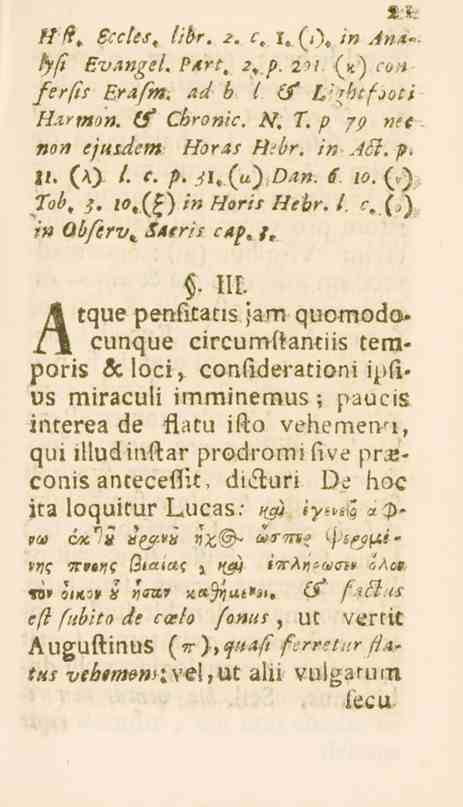 21
Hiſt. Eccles. libr. 2. c. 1. (ι). in Ana-
lyſi Evangel. Part. 2. p. 291. (κ) con
ferſis Eraſm. ad h. l. & Lightfooti
Harmon. & Chronic. N. T. p 79 nec
non ejusdem Horas Hebr. in Act. p.
11. (λ) l. c. p. 31. (μ) Dan. 6. 10. (ν)
Tob. 3. 10. (ξ) in Horis Hebr. l. c. (ο)
in Obſerv. Sacris cap. 3.
§. III.
Atque penſitatis jam quomodo-
cunque circumſtantiis tem-
poris & loci, conſiderationi ipſi-
us miraculi imminemus; paucis
interea de flatu iſto vehementi,
qui illud inſtar prodromi ſive præ-
conis anteceſſit, dicturi. De hoc
ita loquitur Lucas: καὶ ἐγένετο ἄφ-
νω ἐκ τοῦ οὐρανοῦ ἦχος ὥσπερ φερομέ-
νης πνοῆς βιαίας, καὶ ἐπλήρωσεν ὅλον
τὸν οἶκον οὗ ἦσαν καθήμενοι. & factus
eſt ſubito de cœlo ſonus, ut vertit
Auguſtinus (π), quaſi ferretur fla-
tus vehemens: vel, ut alii vulgatum
ſecu